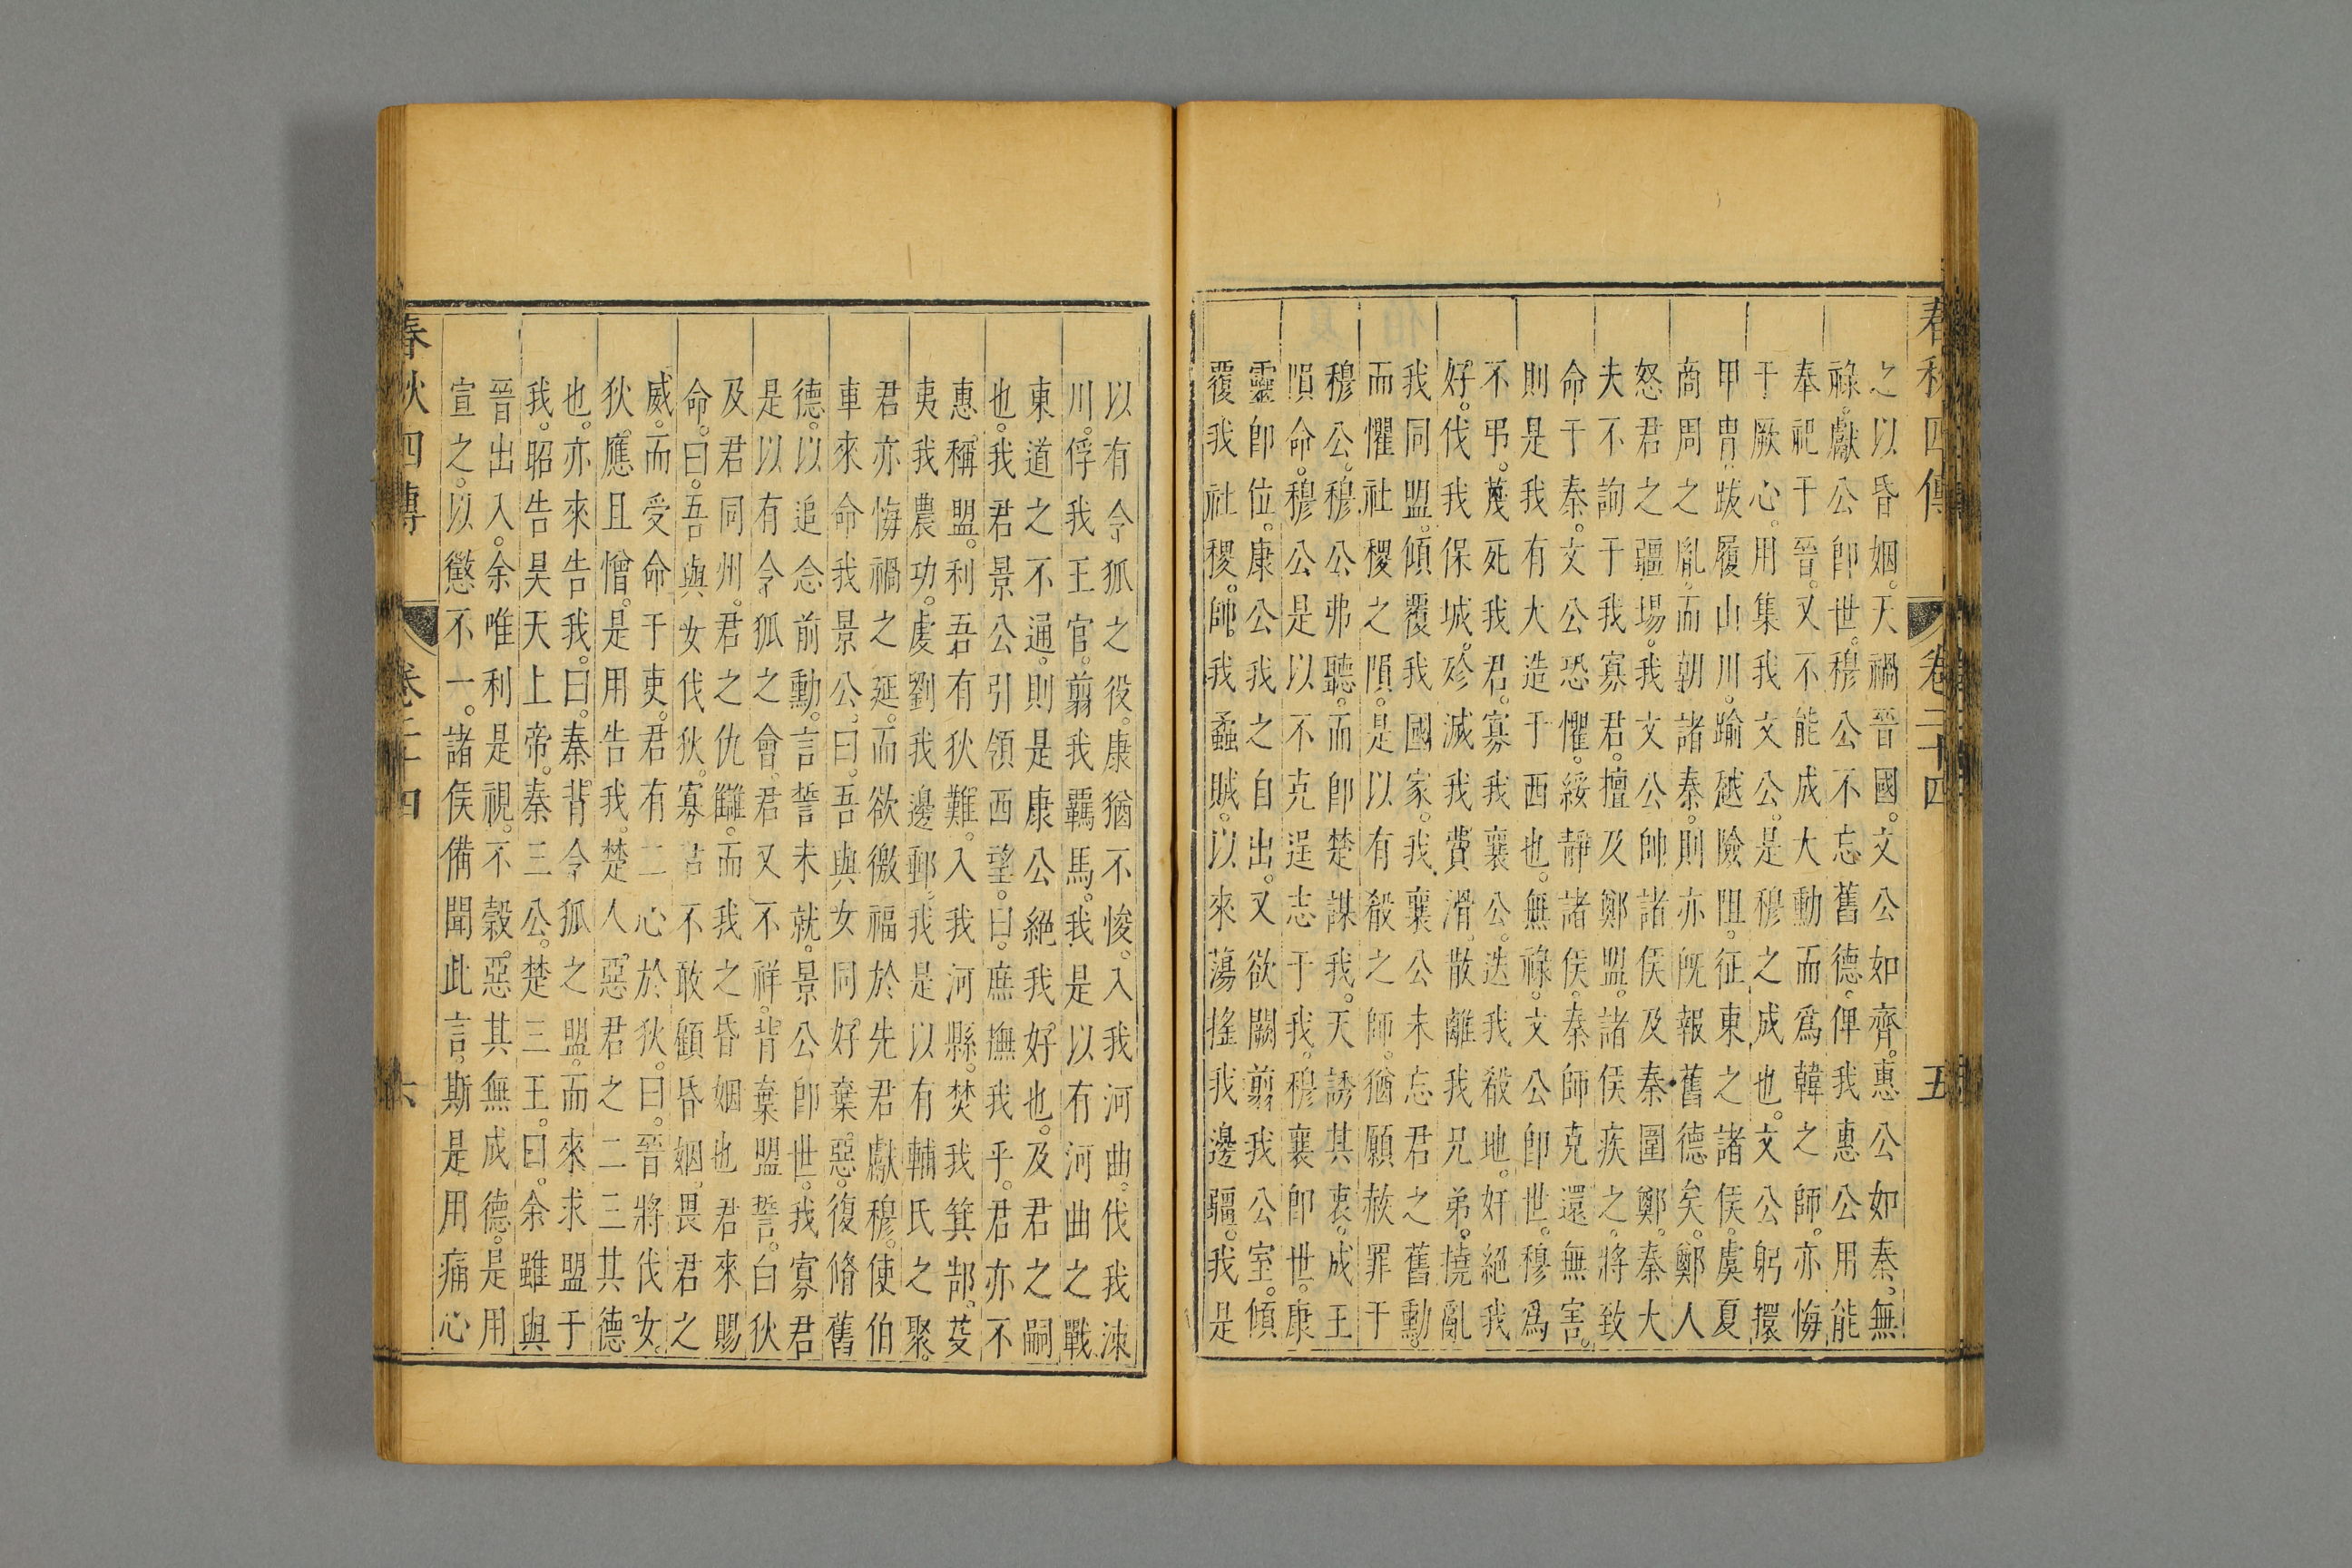 春秋四傳 卷二十四 五
之以昏姻。天禍晉國。文公如齊。惠公如秦。無
祿。獻公卽世。穆公不忘舊德。俾我惠公用能
奉祀于晉。又不能成大動而爲韓之師。亦悔
于厥心。用集我文公。是穆之成也。文公躬擐
甲冑。跋履山川。踰越險阻。征東之諸侯。虞夏
商周之胤。而朝諸秦。則亦旣報舊德矣。鄭人
怒君之疆埸。我文公帥諸侯及秦圍鄭。秦大
夫不詢于我寡君。擅及鄭盟。諸侯疾之。將致
命于秦。文公恐懼。綏靜諸侯。秦師克還無害。
則是我有大造于西也。無祿。文公卽世。穆爲
不弔。蔑死我君。寡我襄公。迭我殽地。奸絕我
好。伐我保城。殄滅我費滑。散離我兄弟。撓亂
我同盟。傾覆我國家。我襄公未忘君之舊勳。
而懼社稷之隕。是以有殽之師。猶願赦罪于
穆公。穆公弗聽。而卽楚謀我。天誘其衷。成王
隕命。穆公是以不克逞志于我。穆襄卽世。康
靈卽位。康公我之自出。又欲闕翦我公室。傾
覆我社稷。帥我蟊賊。以來蕩搖我邊疆。我是
以有令狐之役。康猶不悛。入我河曲。伐我涑
川。俘我王官。翦我羈馬。我是以有河曲之戰
東道之不通。則是康公絕我好也。及君之嗣
也。我君景公引領西望。曰。庶撫我乎。君亦不
惠稱盟。利吾有狄難。入我河縣。焚我箕郜。芟
夷我農功。虔劉我邊郵。我是以有輔氏之聚。
君亦悔禍之延。而欲徼福於先君獻穆。使伯
車來命我景公。曰。吾與女同好棄惡。復脩舊
德。以追念前勳。言誓未就。景公卽世。我寡君
是以有令狐之會。君又不祥。背棄盟誓。白狄
及君同州。君之仇讎。而我之昏姻也。君來賜
命。曰。吾與女伐狄。寡君不敢顧昏姻。畏君之
威。而受命于吏。君有二心於狄。曰。晉將伐女。
狄應且憎。是用告我。楚人惡君之二三其德
也。亦來告我。曰。秦背令狐之盟。而來求盟于
我。昭告昊天上帝。秦三公。楚三王。曰。余雖與
晉出入。余唯利是視。不穀惡其無成德。是用
宣之。以懲不一。諸侯備聞此言。斯是用痛心
春秋四傳 卷二十四 六